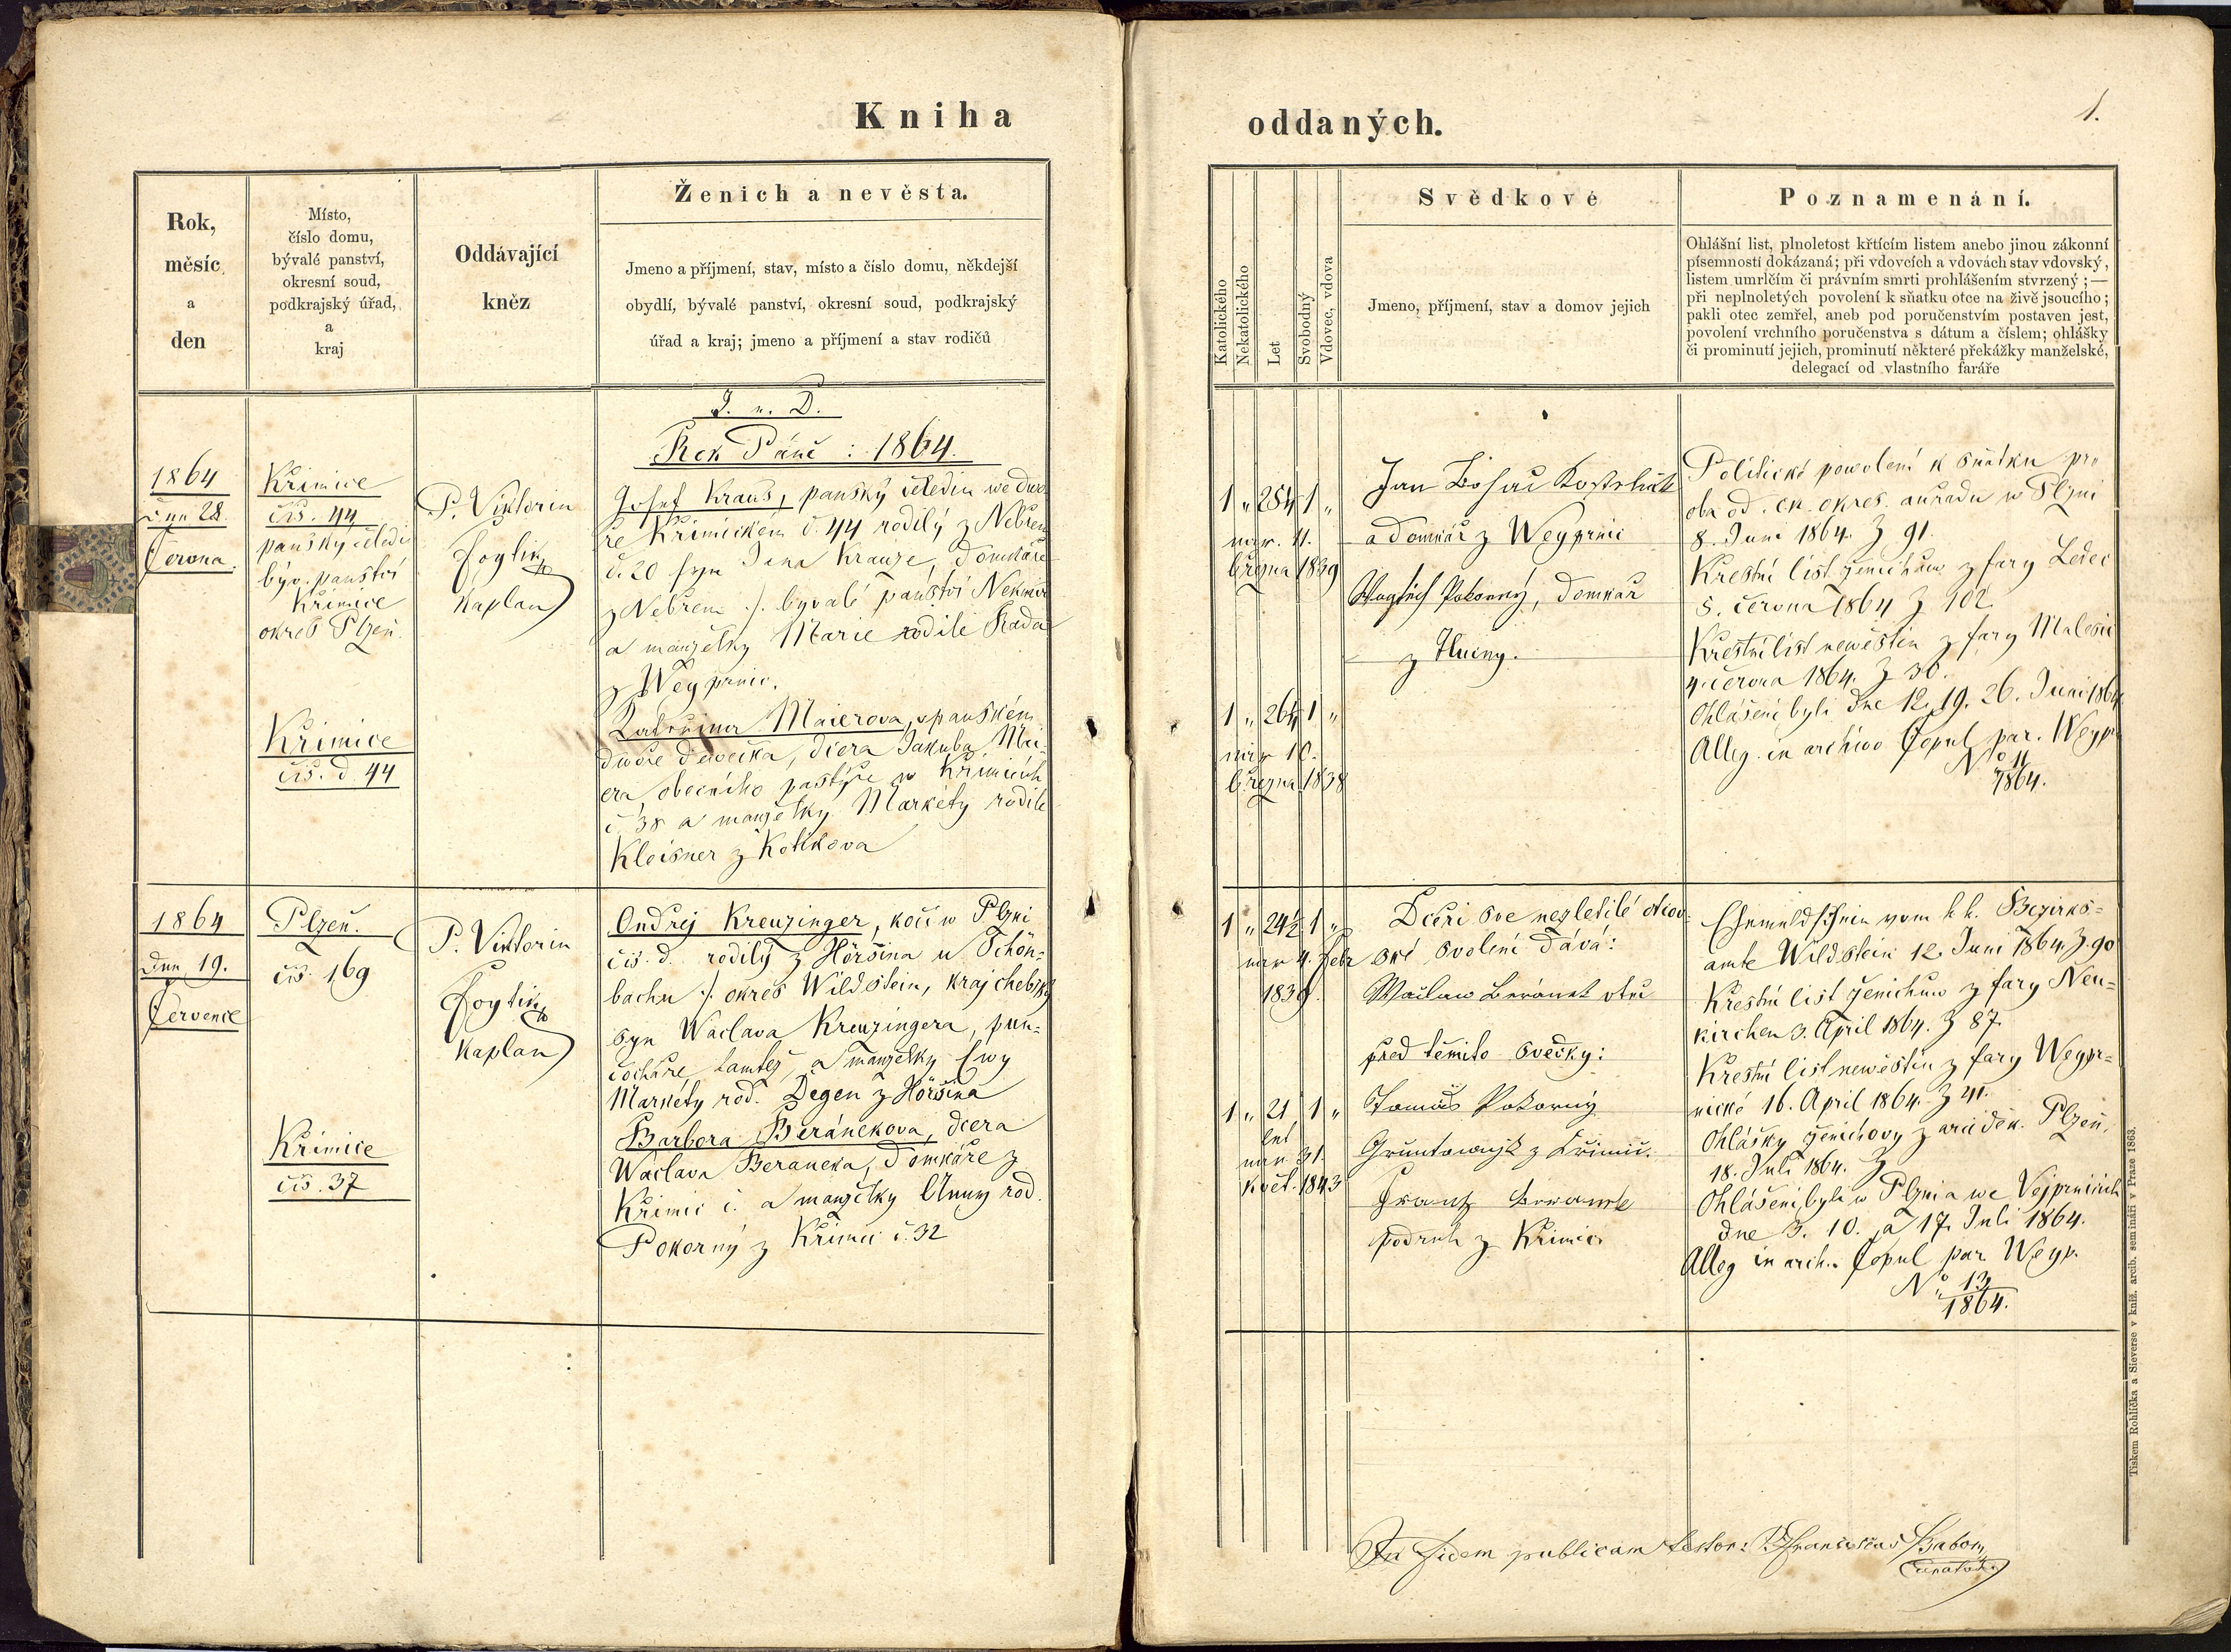 Kniha
oddaných.
1.
Rok,
měsíc
a
den
Místo,
číslo domu,
bývalé panství,
okresní soud,
podkrajský úřad,
a
kraj
Oddávající
kněz
Ženich a nevěsta.
Jmeno a příjmení, stav, místo a číslo domu, někdejší
obydlí, bývalé panství, okresní soud, podkrajský
úřad a kraj; jmeno a příjmení a stav rodičů
Katolického
Nekatolického
Let
Svobodný
Vdovec, vdova
Svědkové
Jmeno, příjmení, stav a domov jejich
Poznamenání.
Ohlášní list, plnoletost křtícím listem anebo jinou zákonní
písemností dokázaná; při vdovcích a vdovách stav vdovský,
listem umrlčím či právním smrti prohlášením stvrzený; —
při neplnoletých povolení k sňatku otce na živě jsoucího;
pakli otec zemřel, aneb pod poručenstvím postaven jest,
povolení vrchního poručenstva s dátum a číslem; ohlášky
či prominutí jejich, prominutí některé překážky manželské,
delegací od vlastního faráře
J. n. D.
Rok Páně : 1864.
1864
dne 28.
Června.
Křimice
čis. 44
panský čeledín
býv. panství
Křimice
okres Plzeň.
Křimice
čis. d. 44
P. Viktorin
Foytin
Kaplan
Josef Kraus, panský čeledin we dwo
ře Křimickem č. 44 rodilý z Nebřem
č. 20 syn Jana Krauze, domkáře
z Nebřem /. byvalé panství Nekmíř
a manželky Marie rodilé Rada
z Weyprnic.
Kateřina Maierova, v panském
dwoře děwečka, dcera Jakuba Mai-
era, obecního pastýře w Křimicích
č. 38 a manželky Markéty rodile
Kleisner z Kotikova
1 „ 25¼ 1 „
nar. 11.
března 1839
1 „ 26¼ 1 „
nar. 10.
března 1838
a domkář z Weyprnic
Pokorný, domkář
z Hluiny.
Politické powolení k sňatku pro
oba od ck. okres. auřadu w Plzni
8. Juni 1864. Z 91.
Krestní list ženichuw z fary Ledec
5. června 1864 Z 102.
Krestní list newěstin z fary Malesic
4. června 1864. Z 36.
Ohlášeni byli dne 12. 19. 26. Juni 1864
Alleg. in archivo Copul par. Weypr
No 11
1864.
1864
Dne 19.
Července
Plzeň.
čis. 169
Křimice
čis. 37
P. Viktorin
Foytin
Kaplan
Ondřej Kreuzinger, kočí w Plzni
čis. d. rodilý z Höršina u Schön-
bachu /. okres Wildstein, kraj chebský
syn Waclava Kreuzingera, pun-
čocháře tamtéž, a manželky Ewy
Markéty rod. Degen z Höršina
Barbora Beránekova, dcera
Wáclava Beraneka, domkáře z
Křimic č. a manželky Anny rod.
Pokorný z Křimic č. 32
1 „ 24½ 1 „
nar 4. Febr
1839.
1 „ 21 1 „
let
nar. 31.
Květ. 1843
Dceři své nezletilé otcov-
ské svolení dává:
Waclaw Beránek otec
před těmito svědky:
Tomáš Pokorný
podruh z Křimic
vom k. k. Bezirks-
amte Wildstein 12. Juni 1864. Z. 90
Krestní list ženichuw z fary Neu-
kirchen 3. April 1864. Z 87.
Krestní list newěstin z fary Weypr-
nické 16. April 1864. Z 41.
Ohlášky ženichovy z arciděk. Plzeň,
18. Juli 1864. Z
Ohlášeni byli w Plzni a we Vejprnicích
dne 3. 10. a 17. Juli 1864.
Alleg in arch. Copul par Weyp.
No 13
1864.
In fidem publicam testor: P. Franciscus
Tiskem Rohlíčka a Sieverse v kníž. arcib. semináři v Praze 1863.